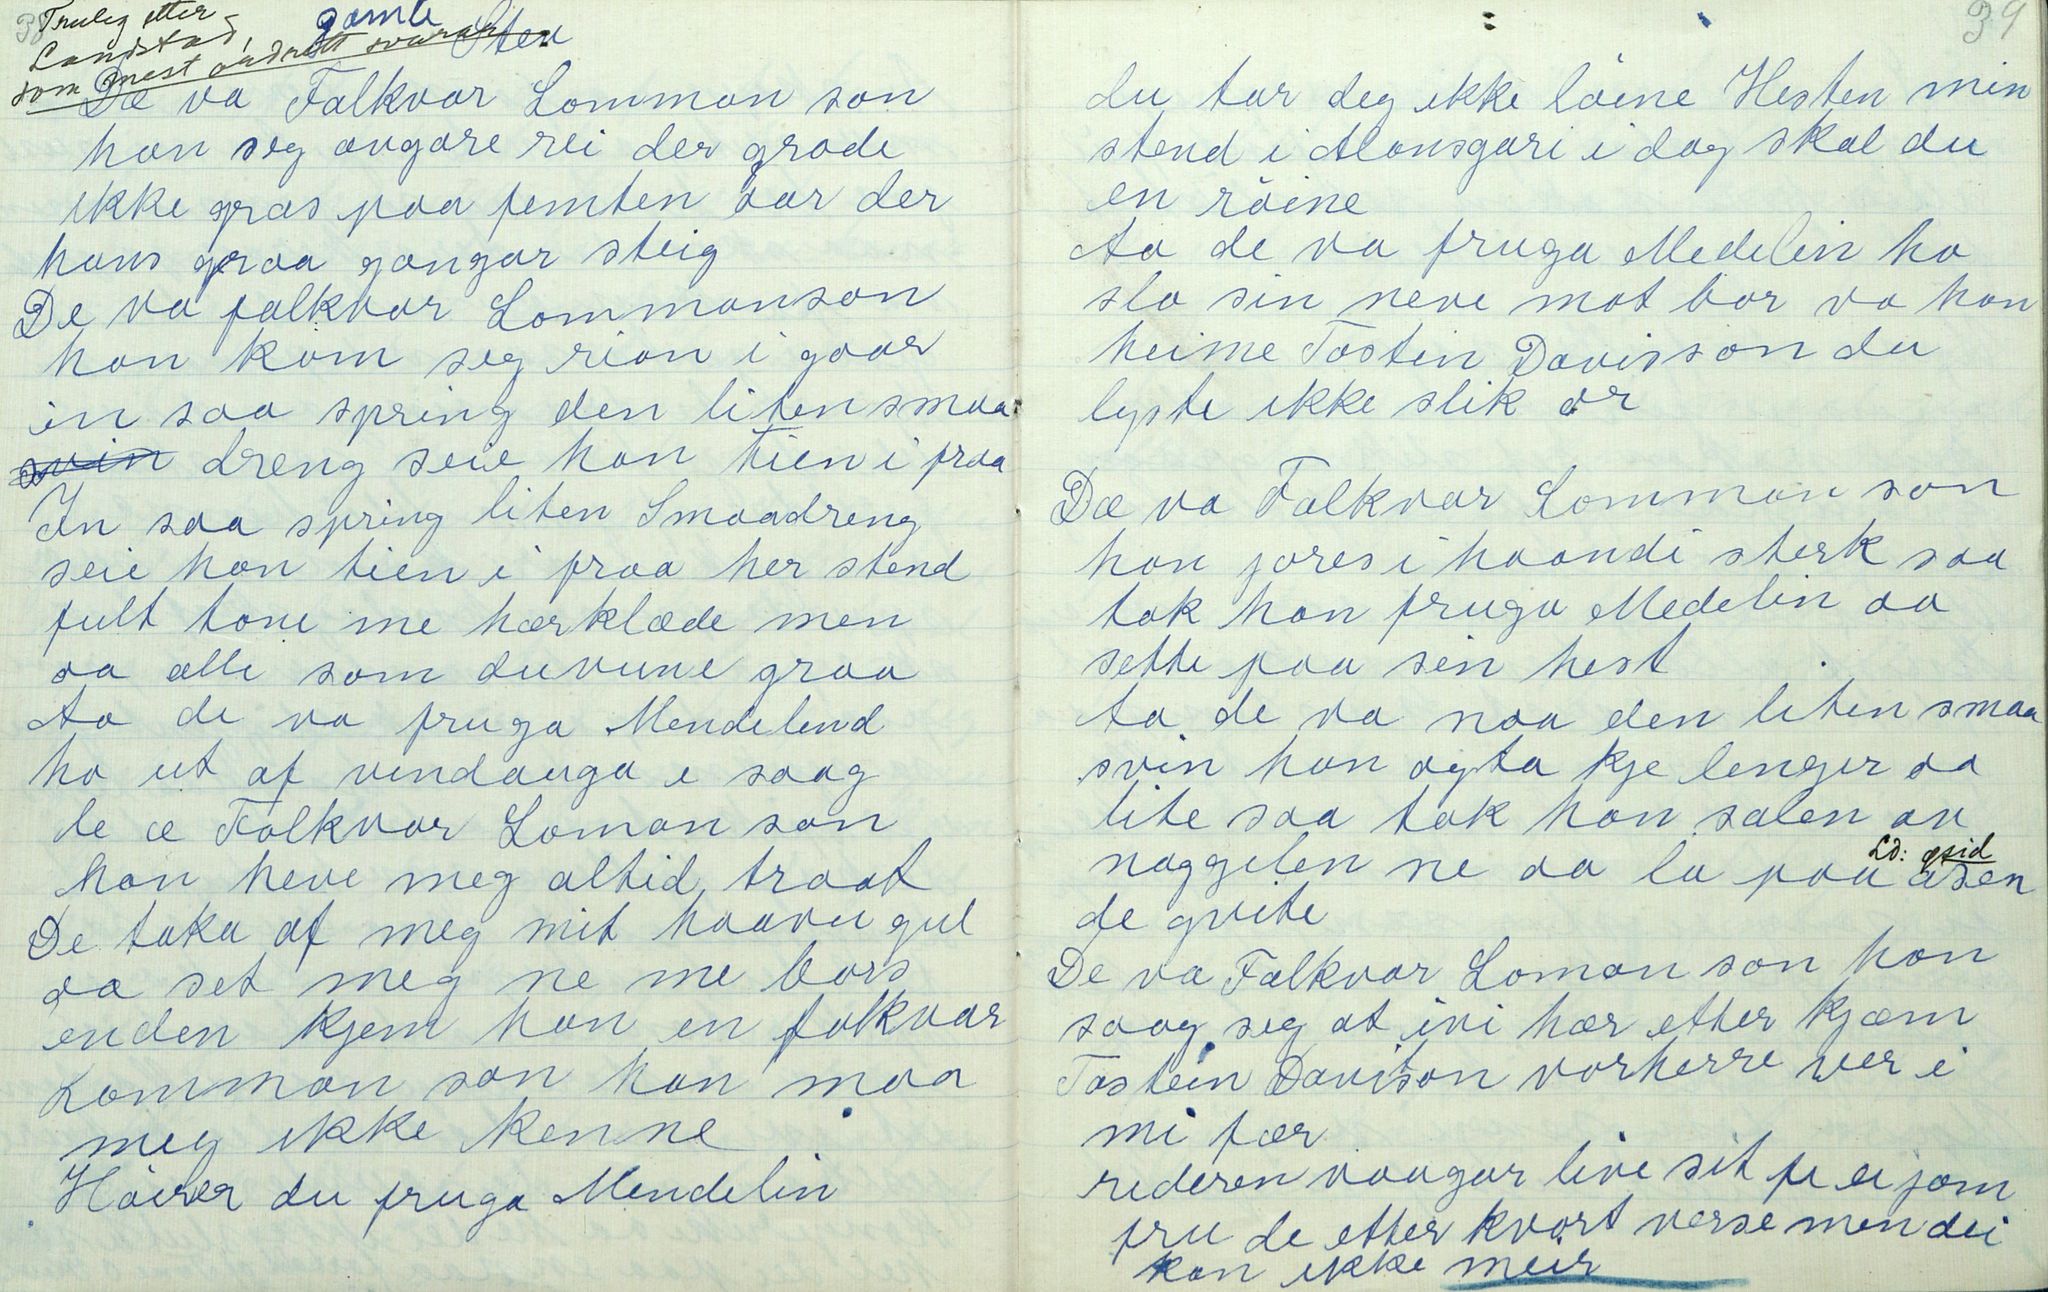 38
Truleg etter
Landstad,
som mest ordrett svarar.
gamle
Stev
Dæ va Falkvar Lommon son
han seg avgare rei der grode
ikke gras paa femten aar der
hans graa gangar steig
De va falkvar Lommonson
han kom seg rian i gaar
in saa spring den liten smaa
svin dreng seie han tien i fraa
In saa spring liten Smaadreng
seie han tien i fraa her stend
fult tone me hærklæde men
aa alli som duvune graa
Aa de va fruga Mendelend
ho ut af vindauga i saag
le æ Folkvar Loman son
han heve meg altid traat
De taka af meg mit haavu gul
aa set meg ne me bors
enden kjem han en folkvar
Lommon son han maa
meg ikke kenne
Høirer du fruga Mendelin
39
du tar deg ikke løine Hesten min
stend i Alonsgari i dag skal du
en røine
Aa de va fruga Medelin ho
slo sin neve mot bor va han
heime Tostin Davisson du
lyste ikke slik or
Dæ va Falkvar Lommon son
han jores i haandi sterk saa
tok han fruga Medelin aa
sette paa sin hest
ta de va naa den liten smaa
svin han agta kje lenger aa
lite saa tok han salen av
naggelen ne aa la paa asen
Ld: essid
de qvite
De va Falkvar Loman son han
saag seg at ivi hær etter kjæm
Tostein Davison vorherre ver i
mi fær
rideren vaagar live sit fu ei jom
fru de etter kvart verse men dei
kan ikke meir